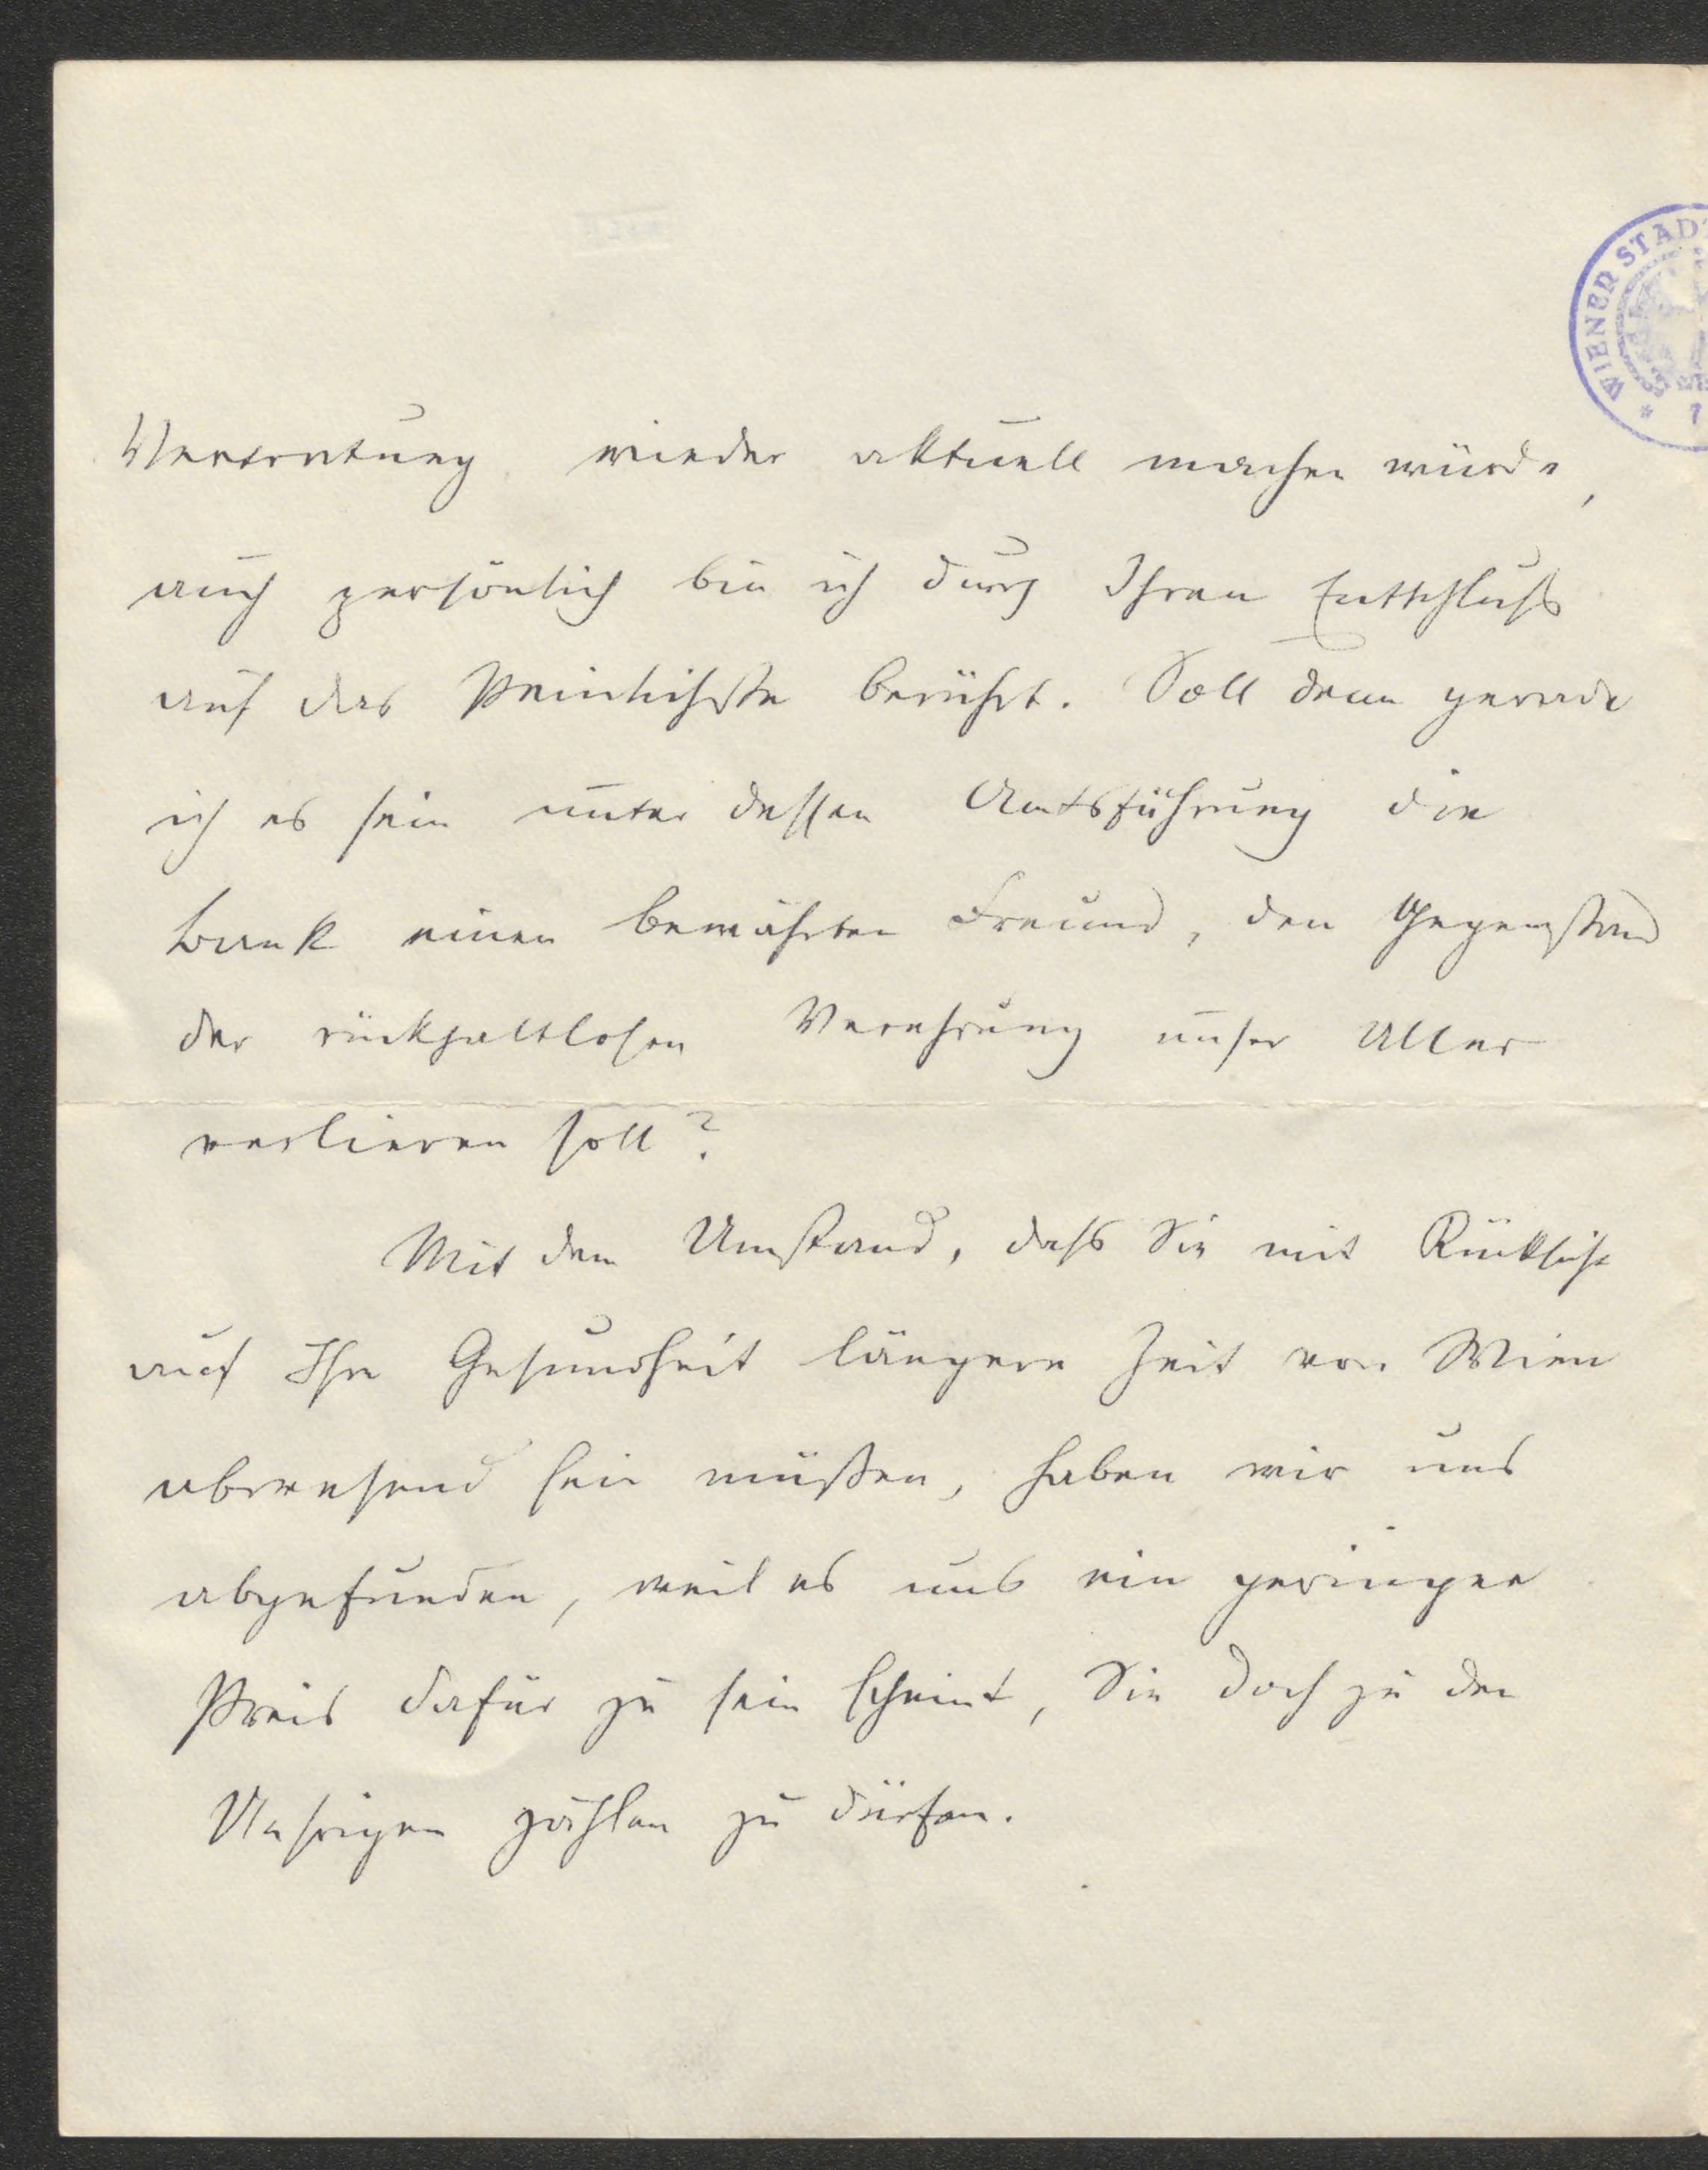 WIENER STAD
7
Vertretung wieder aktuell machen würde,
auch persönlich bin ich durch Ihren Entschluß
auf das Peinlichste berührt. Soll denn gerade
ich es sein unter dessen Amtsführung die
Bank einen bewährten Freund, den Gegenstand
der rückhaltlosen Verehrung unser Aller
verlieren soll?
Mit dem Umstand, daß Sie mit Rücksicht
auf Ihre Gesundheit längere Zeit von Wien
abwesend sein müßen, haben wir uns
abgefunden, weil es uns ein geringer
Preis dafür zu sein scheint, Sie doch zu den
Unsrigen zählen zu dürfen.